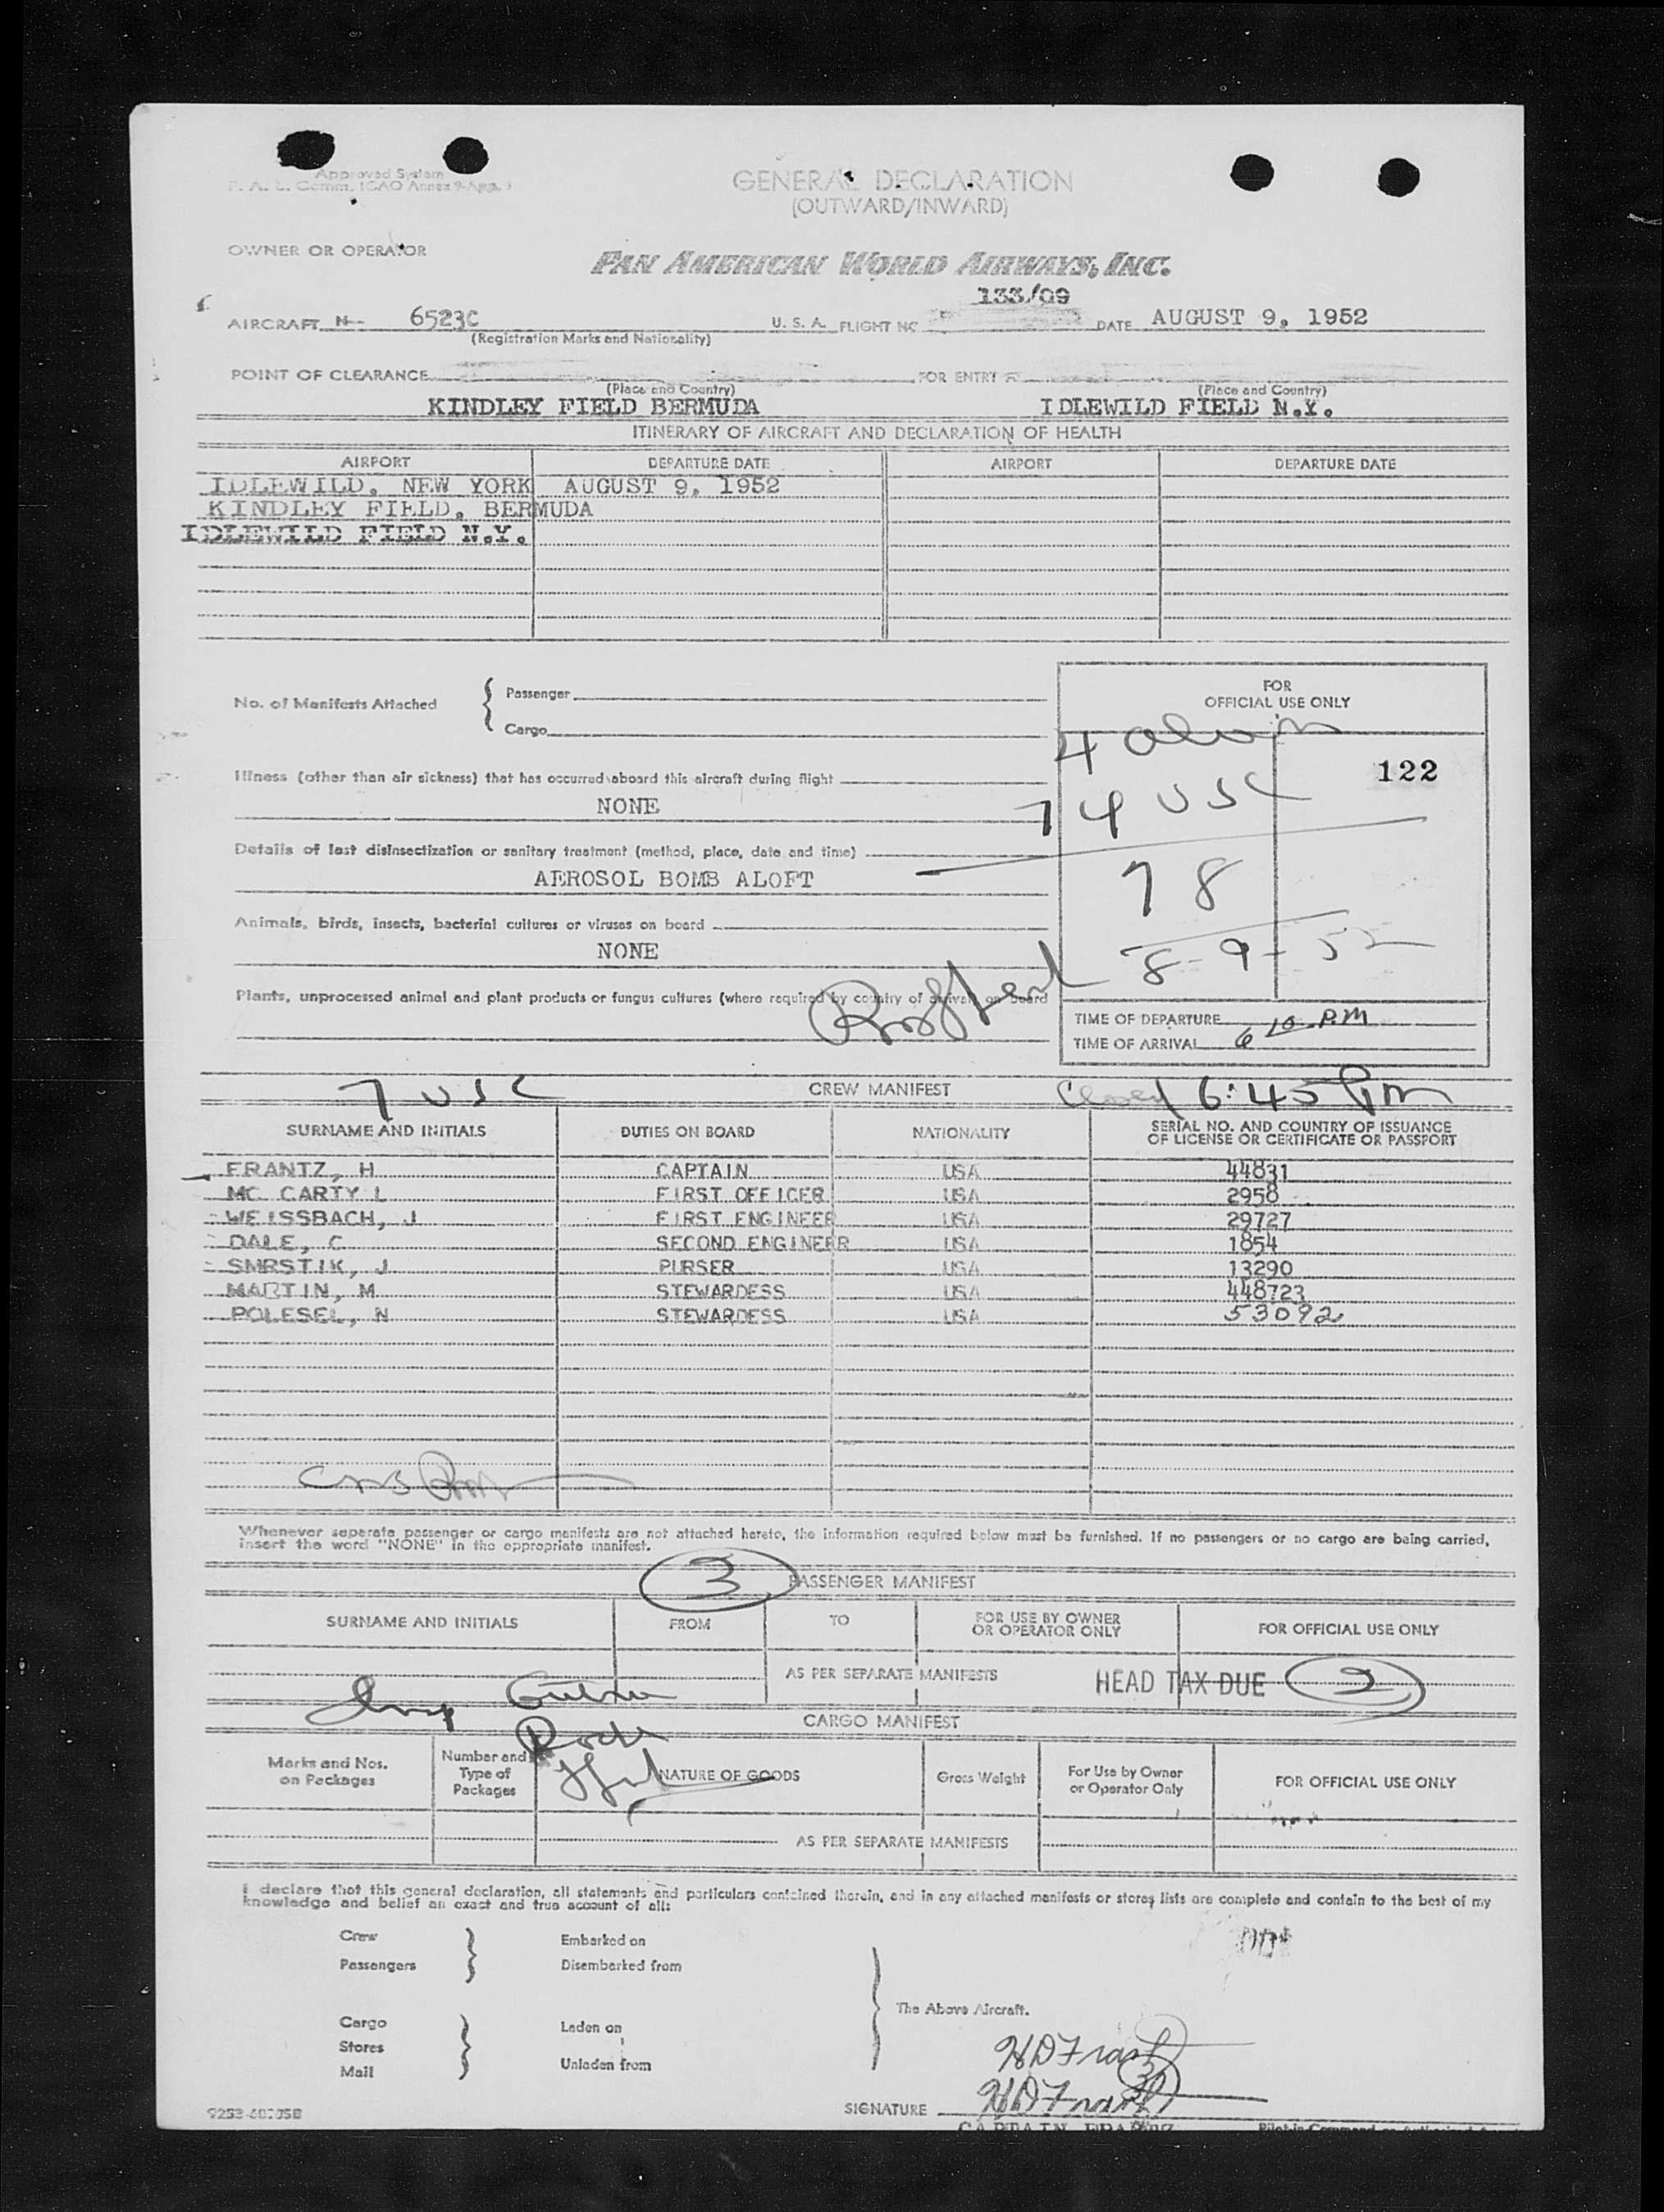 Approved System
F. A. L. Comm. ICAO Annex 9-App. 1
GENERAL DECLARATION
(OUTWARD/INWARD)
OWNER OR OPERATOR
PAN AMERICAN WORLD AIRWAYS, INC.
133/09
AIRCRAFT N 6523C U. S. A. FLIGHT NO DATE AUGUST 9, 1952
(Registration Marks and Nationality)
POINT OF CLEARANCE FOR ENTRY
(Place and Country) (Place and Country)
KINDLEY FIELD BERMUDA IDLEWILD FIELD N.Y.
ITINERARY OF AIRCRAFT AND DECLARATION OF HEALTH
AIRPORT DEPARTURE DATE AIRPORT DEPARTURE DATE
IDLEWILD, NEW YORK AUGUST 9, 1952
KINDLEY FIELD, BERMUDA
IDLEWILD FIELD N.Y.
No. of Manifests Attached { Passenger
Cargo
FOR
OFFICIAL USE ONLY
4
122
74 USC
78
8-9-52
Illness (other than air sickness) that has occurred aboard this aircraft during flight
NONE
Details of last disinsectization or sanitary treatment (method, place, date and time)
AEROSOL BOMB ALOFT
Animals, birds, insects, bacterial cultures or viruses on board
NONE
Plants, unprocessed animal and plant products or fungus cultures (where required by country of arrival) on board
TIME OF DEPARTURE
TIME OF ARRIVAL 6 10 P.M
7 USC CREW MANIFEST Closed 6:45 Pm
SURNAME AND INITIALS DUTIES ON BOARD NATIONALITY SERIAL NO. AND COUNTRY OF ISSUANCE
OF LICENSE OR CERTIFICATE OR PASSPORT
FRANTZ, H CAPTAIN USA 44831
MC CARTY L FIRST OFFICER USA 2958
WEISSBACH, J FIRST ENGINEER USA 29727
DALE, C SECOND ENGINEER USA 1854
SMRSTIK, J PURSER USA 13290
MARTIN, M STEWARDESS USA 448723
POLESEL, N STEWARDESS USA 53092
Whenever separate passenger or cargo manifests are not attached hereto, the information required below must be furnished. If no passengers or no cargo are being carried,
insert the word "NONE" in the appropriate manifest.
3 PASSENGER MANIFEST
SURNAME AND INITIALS FROM TO FOR USE BY OWNER
OR OPERATOR ONLY FOR OFFICIAL USE ONLY
AS PER SEPARATE MANIFESTS HEAD TAX DUE 3
CARGO MANIFEST
Marks and Nos.
on Packages Number and
Type of
Packages NATURE OF GOODS Gross Weight For Use by Owner
or Operator Only FOR OFFICIAL USE ONLY
AS PER SEPARATE MANIFESTS
I declare that this general declaration, all statements and particulars contained therein, and in any attached manifests or stores lists are complete and contain to the best of my
knowledge and belief an exact and true account of all:
Crew Embarked on
Passengers Disembarked from
The Above Aircraft.
Cargo Laden on
Stores
Mail Unladen from
HD Frantz
HD Frantz
SIGNATURE
CAPTAIN FRANTZ